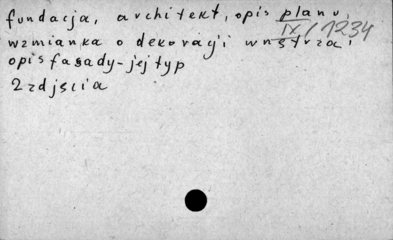 fundacja, architekt, opis planu,
IX/1234
wzmianka o dekoracji wnętrza,
opis fasady-jej typ
2 zdjęcia